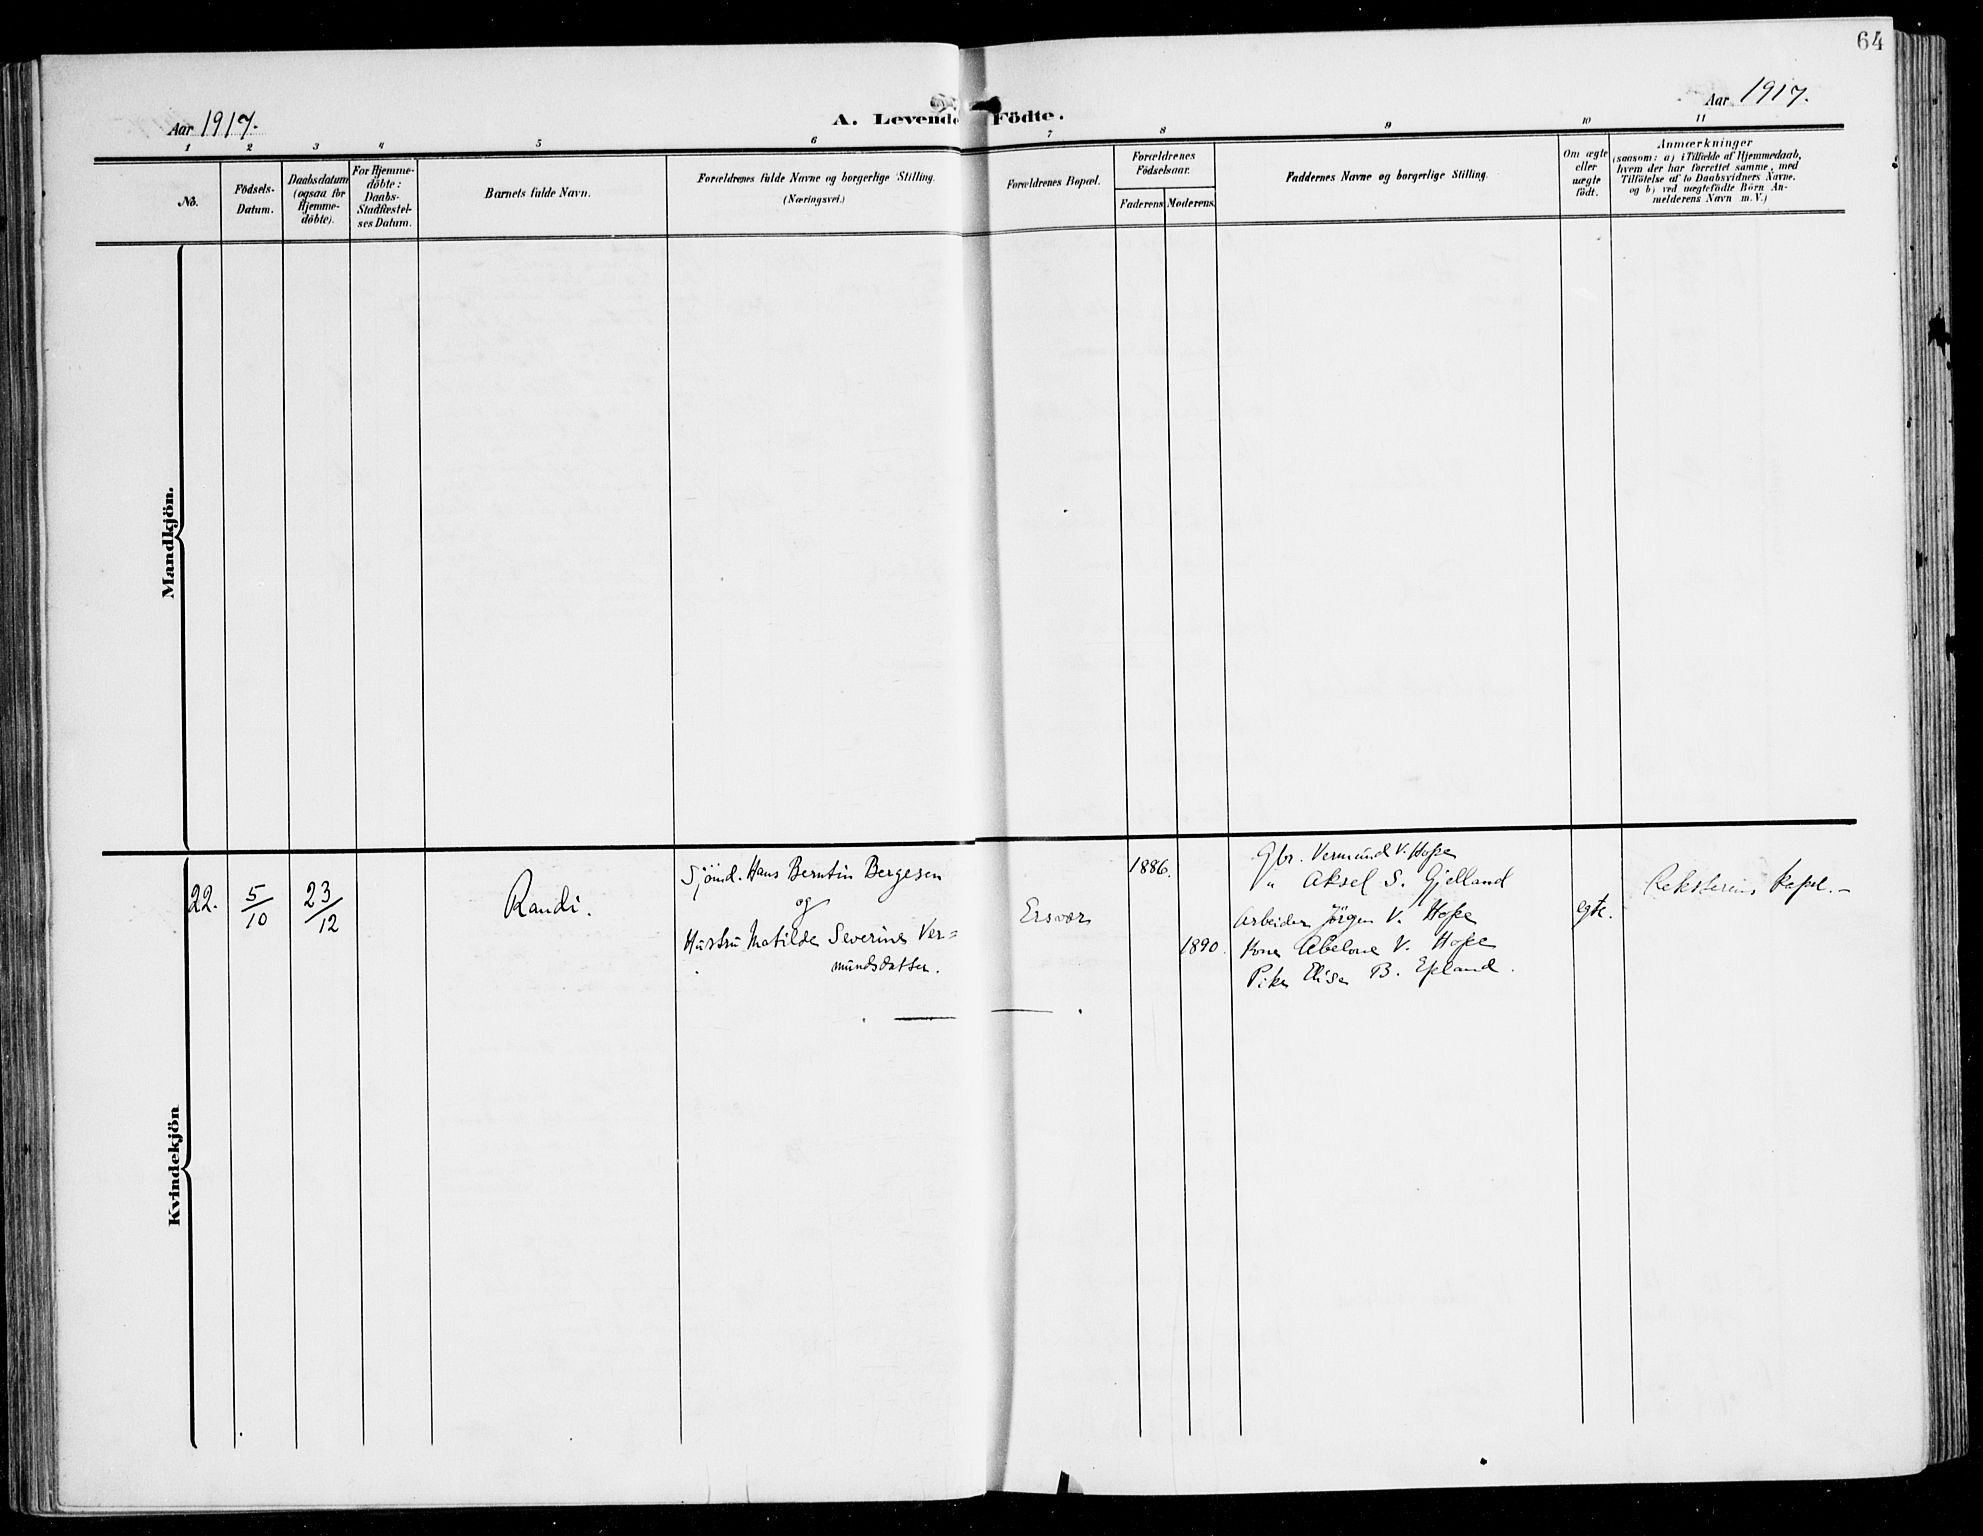 64
Aar 1917.
A. Levende Födte.
Aar 1917.
1 2 3 4 5 6 7 8 9 10 11
No.
Födsels-
Datum.
Daabsdatum
(ogsaa for
Hjemme-
döbte).
For Hjemme-
döbte:
Daabs-
Stadfæstel-
ses Datum.
Barnets fulde Navn.
Forældrenes fulde Navne og borgerlige Stilling.
(Næringsvei.)
Forældrenes Bopæl.
Forældrenes
Födselsaar.
Faderens. Moderens.
Faddernes Navne og borgerlige Stilling.
Om ægte
eller
uægte
födt.
Anmærkninger
(saasom: a) i Tilfælde af Hjemmedaab,
hvem der har forrettet samme, med
Tilföielse af to Daabsvidners Navne,
og b) ved uægtefödte Börn An-
melderens Navn m. V.)
Mandkjön.
Kvindekjön
22.
5/10
23/12
Randi.
Sjömd. Hans Berntin Bergesen
og
Hustru Matilde Severine Ver=
mundsdatter.
Ersvær
1886.
1890.
Gbr. Vermund V. Hope
" Aksel S. Gjelland
Arbeider Jörgen V. Hope
Kone Abelone V. Hope
Pike Elise B. Epland.
egte.
Reksterens kapel.-